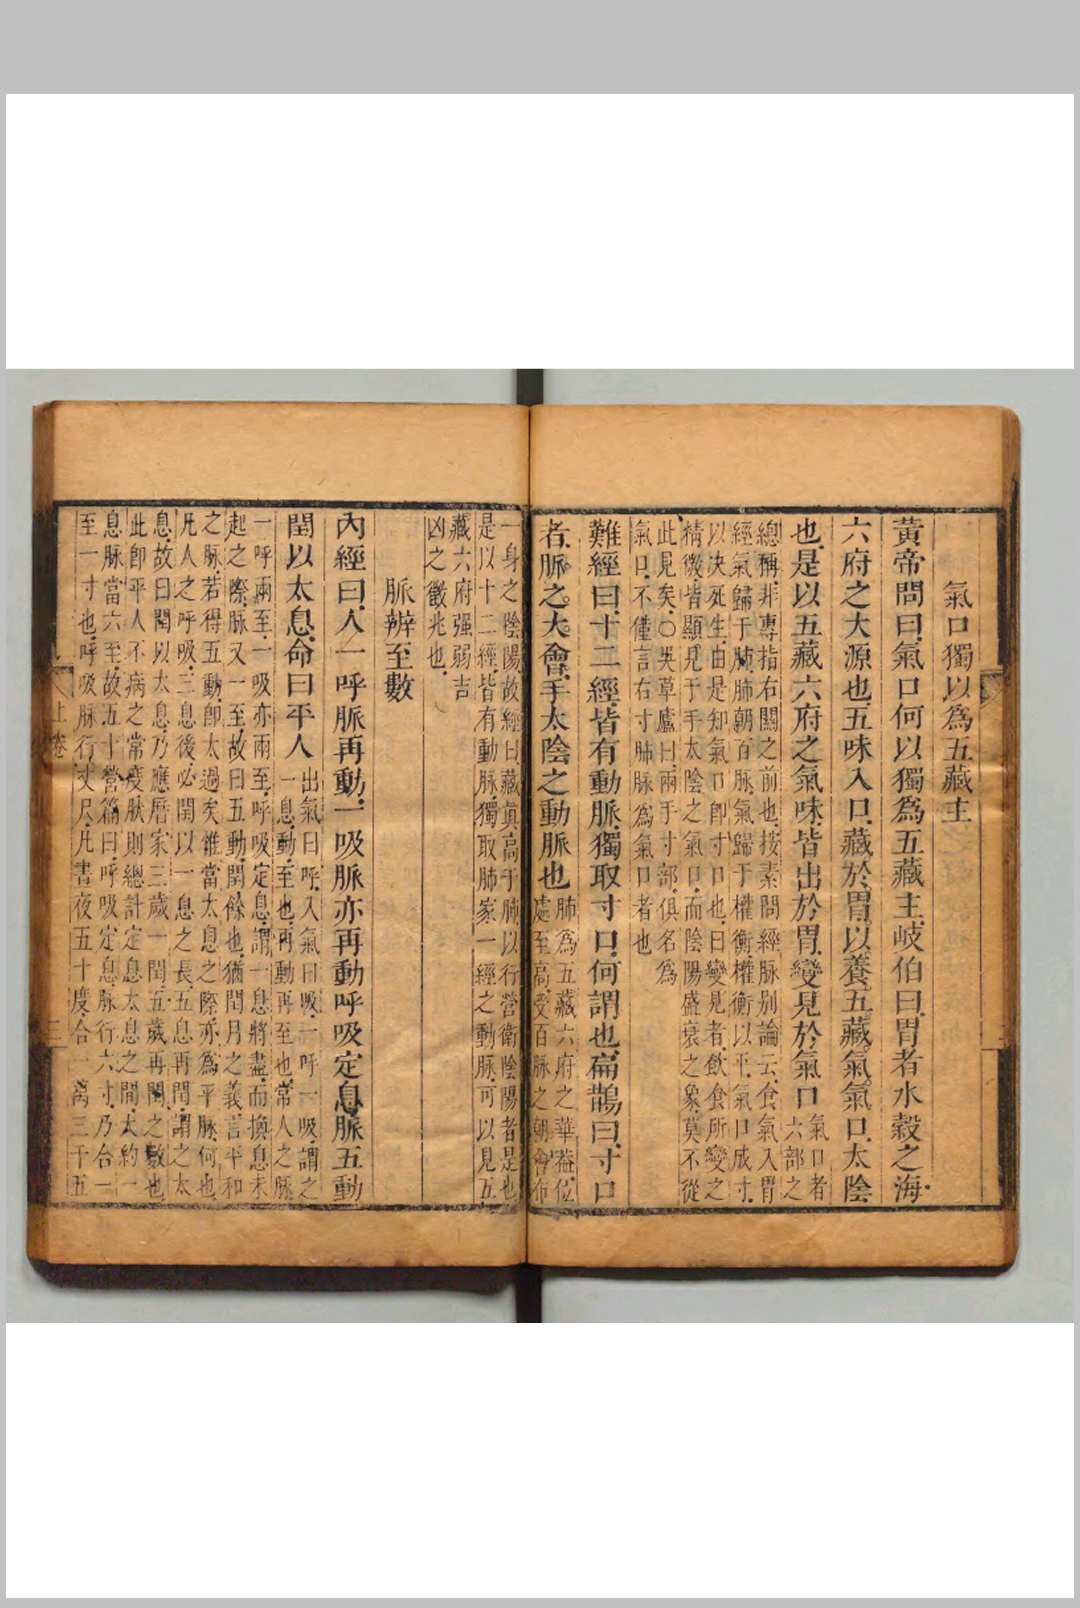 氣口獨以爲五藏主
黃帝問曰氣口何以獨爲五藏主岐伯曰胃者水穀之海
六府之大源也五味入口藏於胃以養五藏氣氣口太陰
也是以五藏六府之氣味皆出於胃變見於氣口
氣口者
六部之
總稱非專指右關之前也按素問經脈别論云食氣入胃
經氣歸于肺肺朝百脈氣歸于權衡權衡以平氣口成寸
以决死生由是知氣口卽寸口也曰變見者飲食所變之
精微皆顯見于手太陰之氣口而陰陽盛衰之象莫不從
此見矣○吳草廬曰兩手寸部俱名爲
氣口不僅言右寸肺脈爲氣口者也
難經曰十二經皆有動脈獨取寸口何謂也扁鵲曰寸口
者脈之大會手太陰之動脈也
肺爲五藏六府之華蓋位
處至高受百脈之朝會布
一身之陰陽故經曰藏真高于肺以行營衛陰陽者是也
是以十二經皆有動脈獨取肺家一經之動脈可以見五
藏六府强弱吉
凶之徵兆也
脈辨至數
內經曰人一呼脈再動一吸脈亦再動呼吸定息脈五動
閏以太息命曰平人
出氣曰呼入氣曰吸一呼一吸謂之
一息動至也再動再至也常人之脈
一呼兩至一吸亦兩至呼吸定息謂一息將盡而換息未
起之際脈又一至故曰五動閏餘也猶閏月之義言平和
之脈若得五動卽太過矣惟當太息之際亦爲平脈何也
凡人之呼吸三息後必閏以一息之長五息再閏謂之太
息故曰閏以太息乃應曆家三歲一閏五歲再閏之數也
此卽平人不病之常度肰則總計定息太息之間大約一
息脈當六至故五十營篇曰呼吸定息脈行六寸乃合一
至一寸也呼吸脈行丈尺凡晝夜五十度合一萬三千五
上卷
三